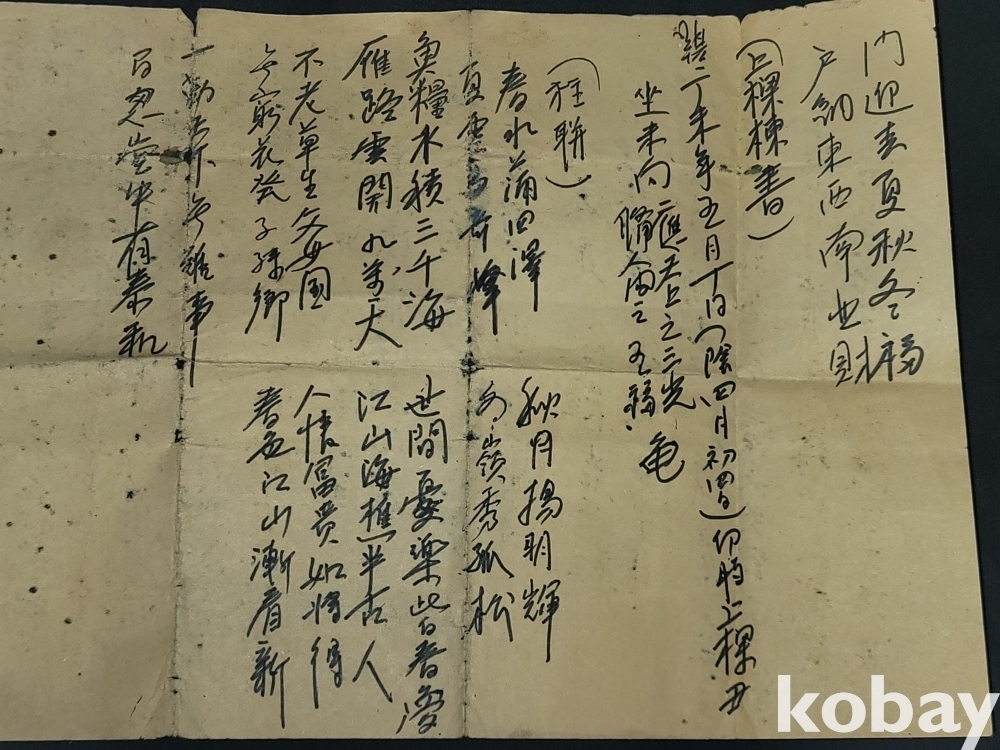 門迎春夏秋冬福
戶納東西南北財
(上樑棟書)
未年五月 日(陰四月初四日)卯時上樑
坐未向 應天上之三光
備人間之五福 龜
(柱聯)
春水滿四澤 秋月揚明輝
夏雲多奇峰 冬嶺秀孤松
魚糧水積三千海 世間憂樂此
雁路雲開九萬天 江山漁樵半古人
不老草生父母國 人情富貴如將得
無窮花發子孫鄉 春色江山漸看新
一勤天下無難事
百忍堂中有泰和
kobay